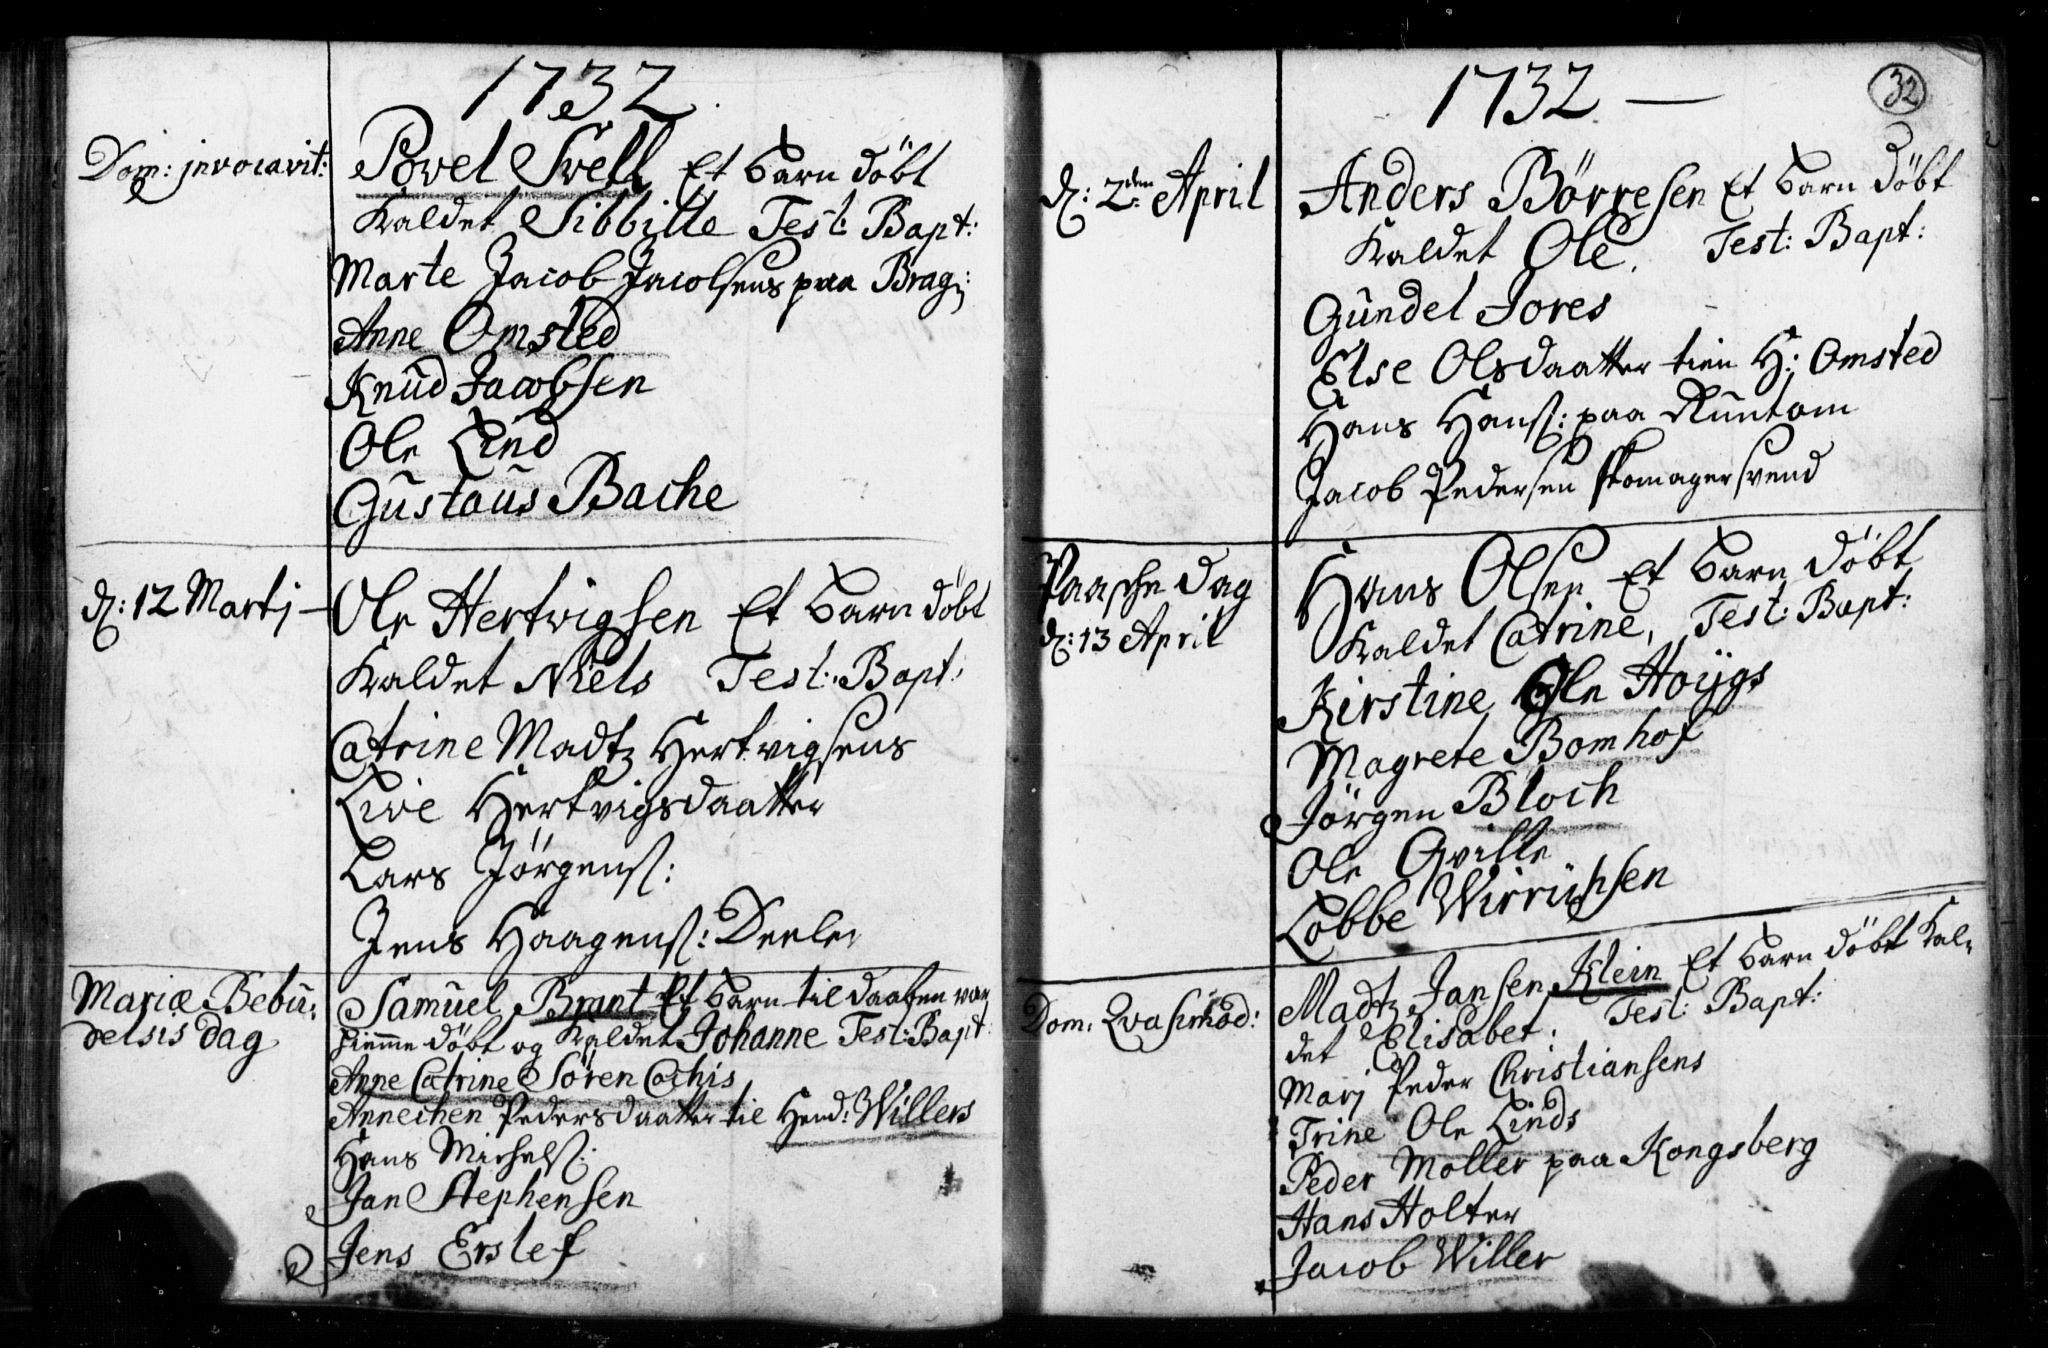 1732
Dom: jnvocavit:
Povel Svell Et barn döbt
Kaldet Sibbille Test: Bapt:
Marte Jacob Jacobsens paa Brag:
Anne Omsted
Knud Jacobsen
Ole Lind
Gustavus Bache
d: 12 Martj
Ole Hertvigsen Et barn döbt
Kaldet Niels Test: Bapt:
Catrine Madtz Hertvigsens
Live Hertvigsdaatter
Lars Jörgens:
Jens Haagens: Deeler
Mariæ Bebu:
delsis dag
Samuel Brant Et barn til daaben var
hiemme döbt og Kaldet Johanne Test: Bapt:
Anne Catrine Sören Cochis
Annechen Pedersdaatter til Hend: Willers
Hans Michels:
Jan Stephensen
Jens Erslef
1732
32
d: 2den April
Anders Börresen Et barn döbt
Kaldet Ole. Test: Bapt:
Gundel Jores
Else Olsdaatter tien H: Omsted
Hans Hans: paa Runtom
Jacob Pedersen skomagersvend
Paasche dag
d: 13 April
Hans Olsen Et barn döbt
Kaldet Catrine, Test: Bapt:
Kirstine Ole Hoygs
Magrete Bomhof
Jörgen Bloch
Ole Qville
Lobbe Wirrichsen
Dom: Qvasimod:
Madtz Jansen Klein Et barn döbt Kal=
det Elisabet: Test: Bapt:
Marj Peder Christiansens
Trine Ole Linds
Peder Moller paa Kongsberg
Hans Holter
Jacob Willer